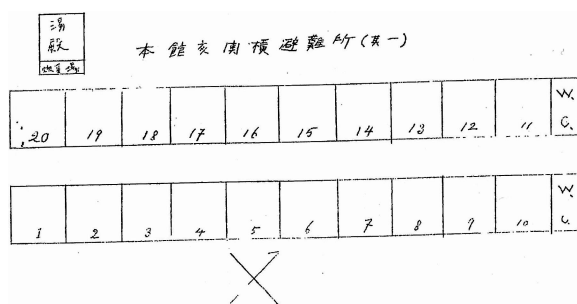 湯
殿
本館玄関横避難所(其一)
20 19 18 17 16 15 14 13 12 11 W.C.
1 2 3 4 5 6 7 8 9 10 W.C.